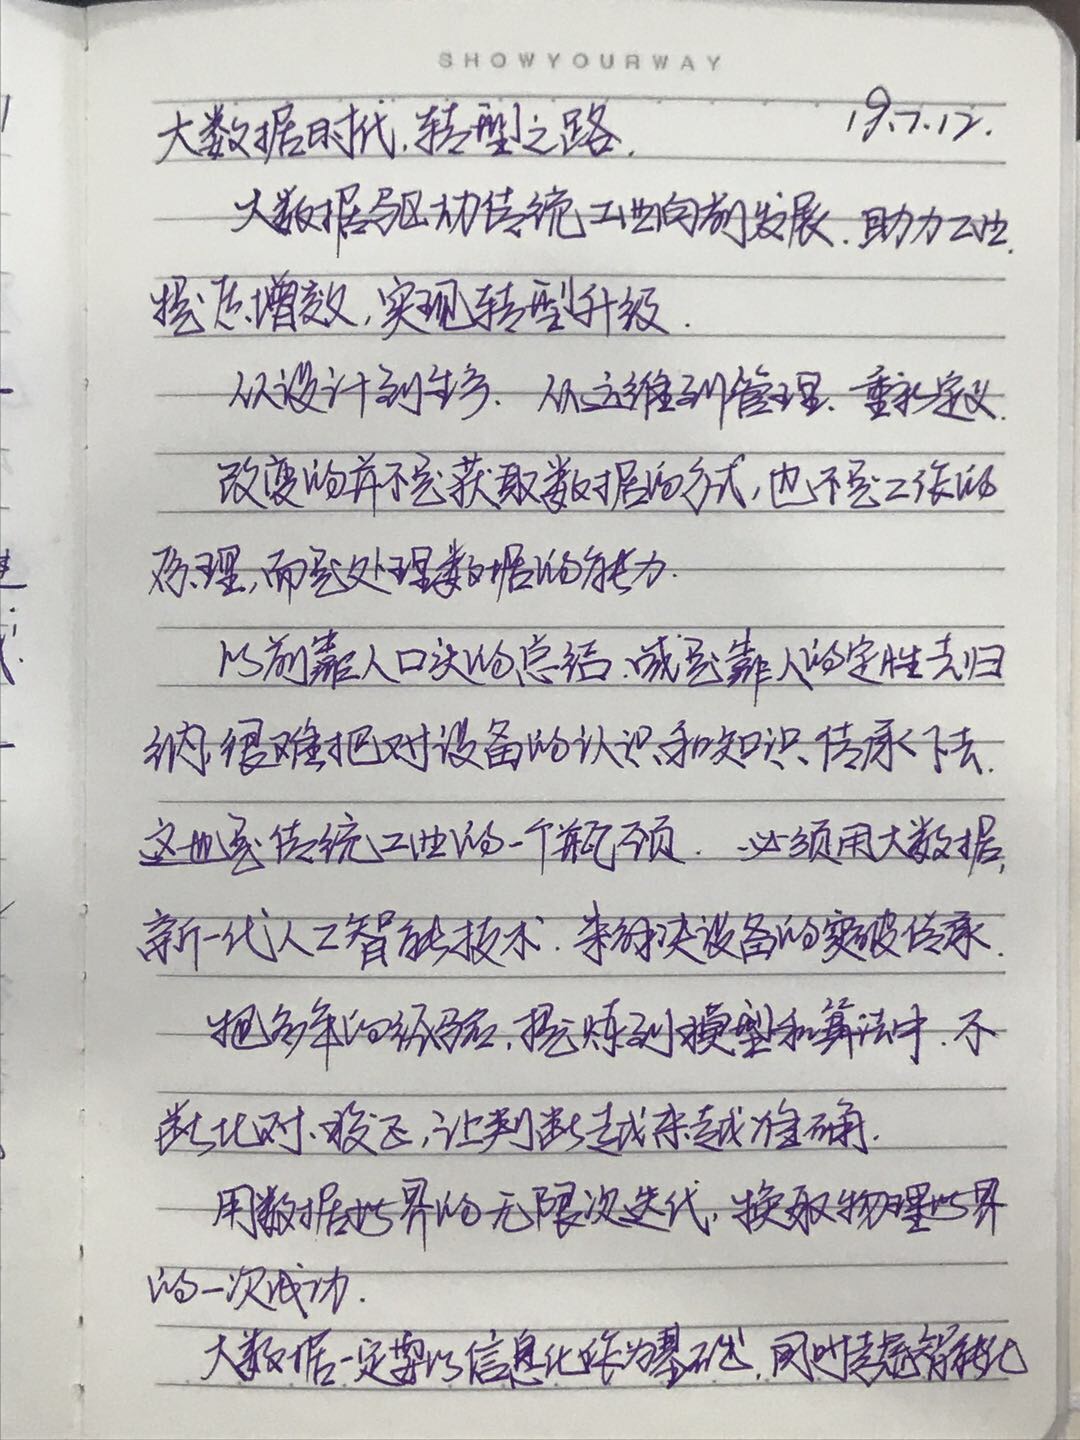 SHOWYOURWAY
大数据时代,转型之路. 19.7.12.
大数据驱动传统工业向前发展.助力工业
提质增效,实现转型升级.
从设计到生产.从运维到管理.重新定义.
改变的并不是获取数据的方式,也不是工作的
原理,而是处理数据的能力.
以前靠人口决的总结.或是靠人的定性去归
纳,很难把对设备的认识和知识传承下去.
这也是传统工业的一个瓶颈.必须用大数据,
新一代人工智能技术.来解决设备的突破传承.
把多年的经验,提炼到模型和算法中.不
断比对、校正,让判断越来越准确.
用数据世界的无限次迭代,换取物理世界
的一次成功.
大数据一定要以信息化作为基础,同时走智能化